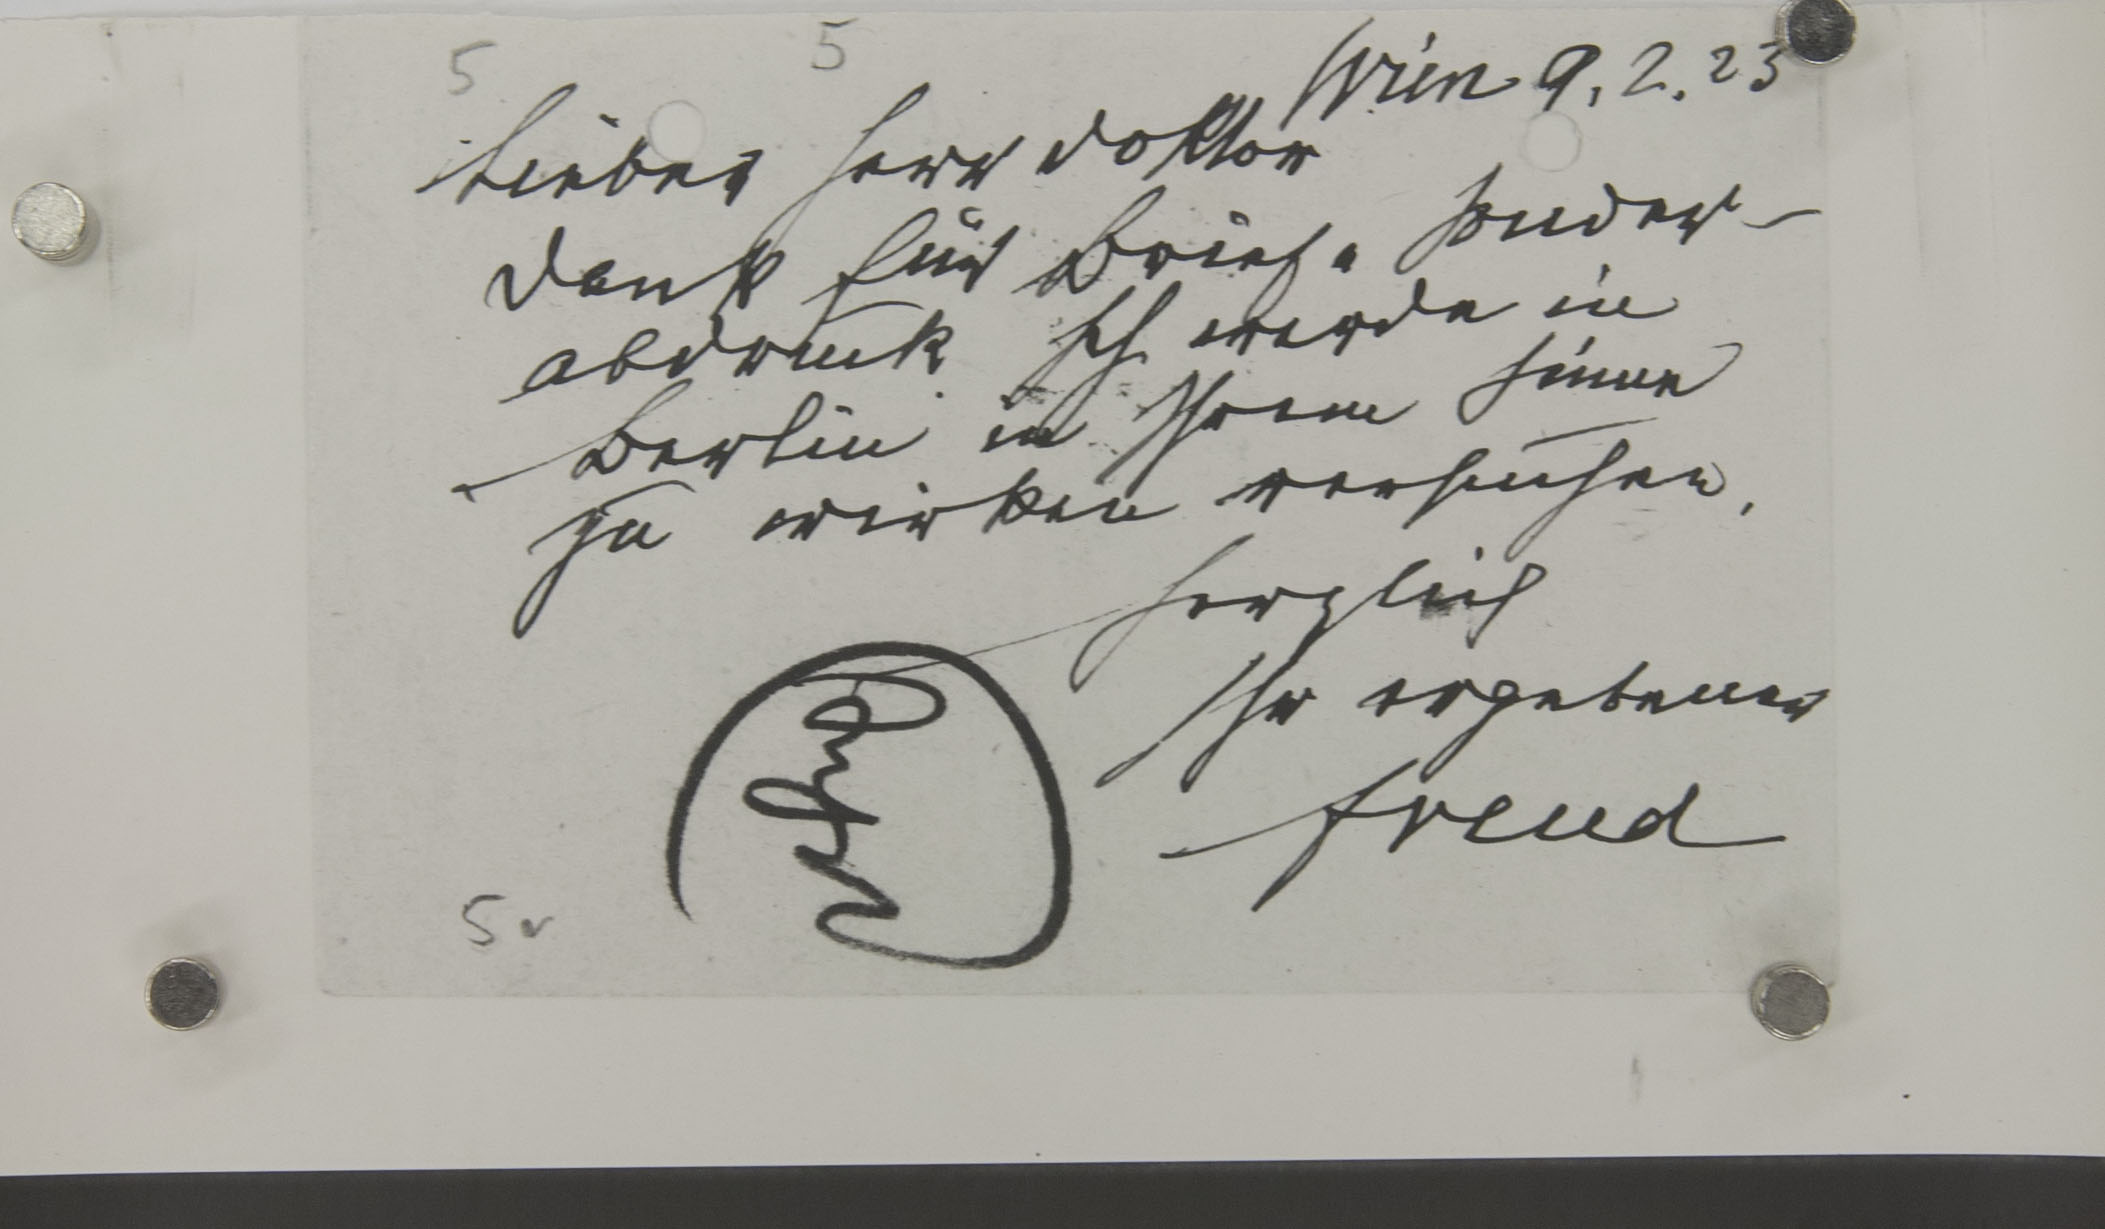 5 5
Wien 9.2.23
Lieber Herr Doktor
Dank für Brief u Sonder-
abdruck Ich werde in
Berlin in Ihrem Sinne
zu wirken versuchen.
Herzlich
Ihr ergebener
Freud
5v